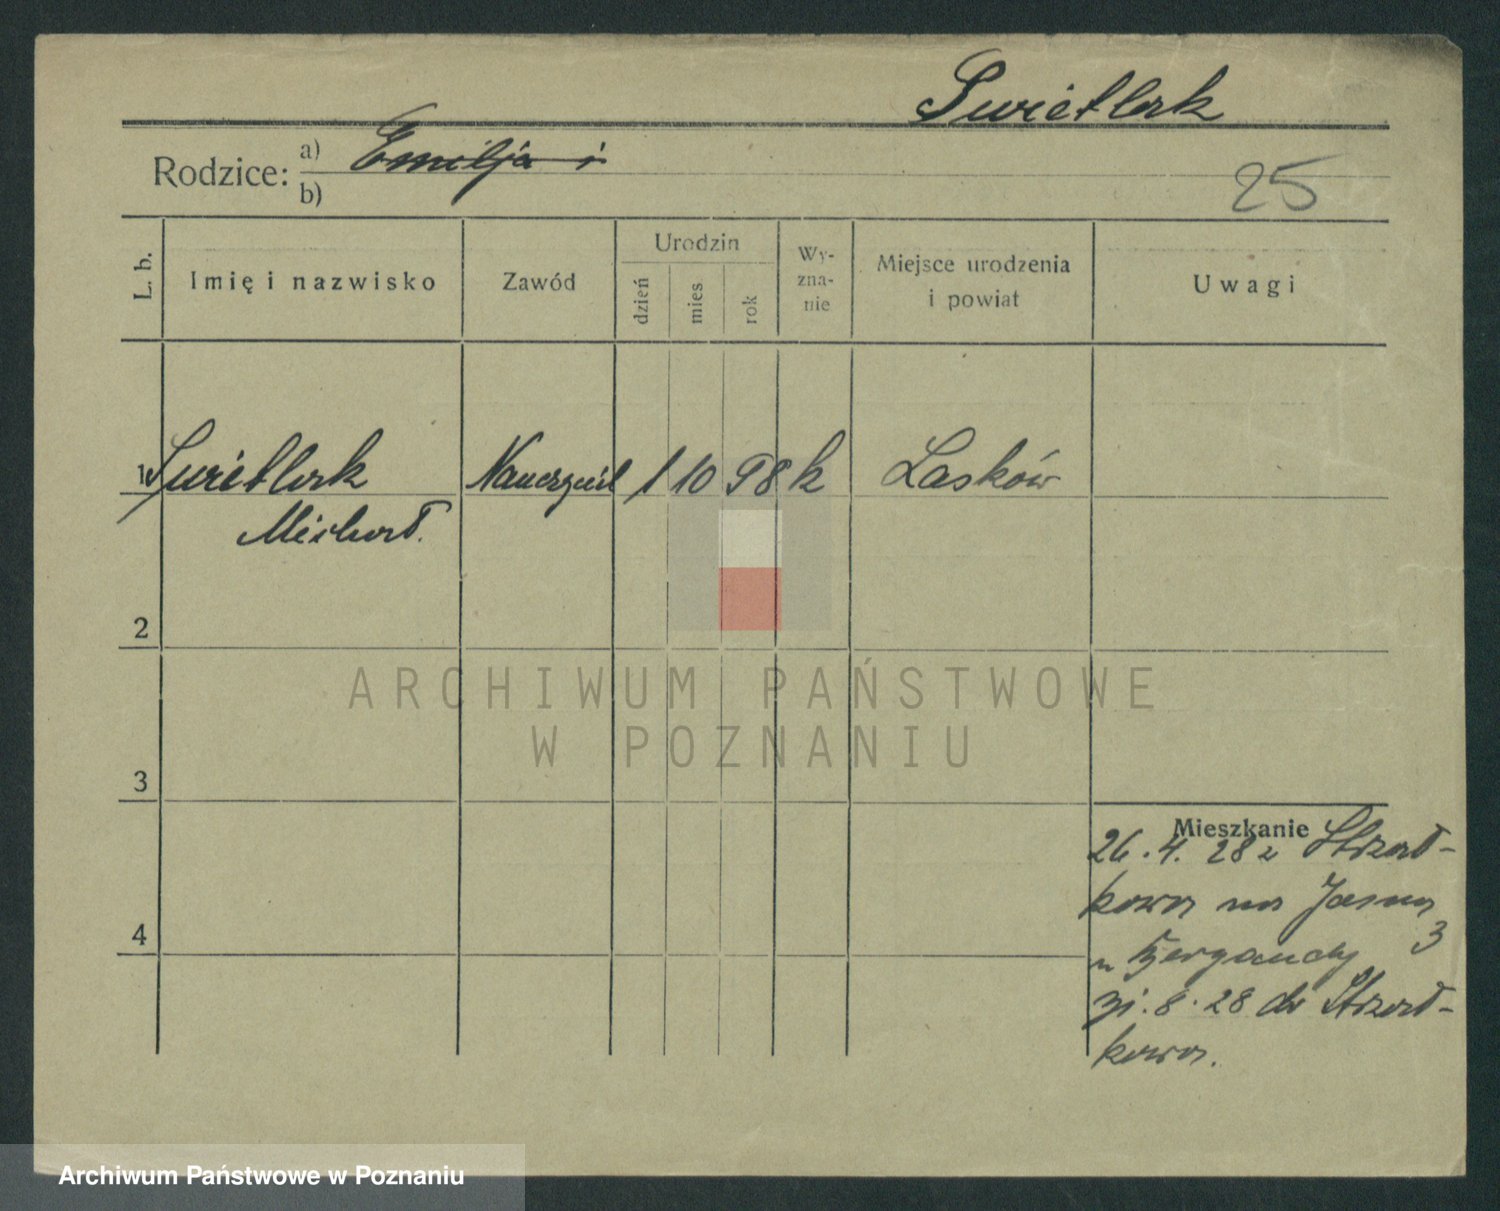 Swietlak
Rodzice: a) Emilja i
b)
25
L. b. Imię i nazwisko Zawód Urodzin dzień mies. rok Wy-zna-nie Miejsce urodzenia i powiat Uwagi
1 Swietlak Nauczyciel 1 10 98 k Lasków
Michał.
2
ARCHIWUM PAŃSTWOWE
W POZNANIU
3
Mieszkanie
26.4.28 z Strzał-
kowa na Jasna
3
u
31.8.28 do Strzał-
kowa.
4
Archiwum Państwowe w Poznaniu